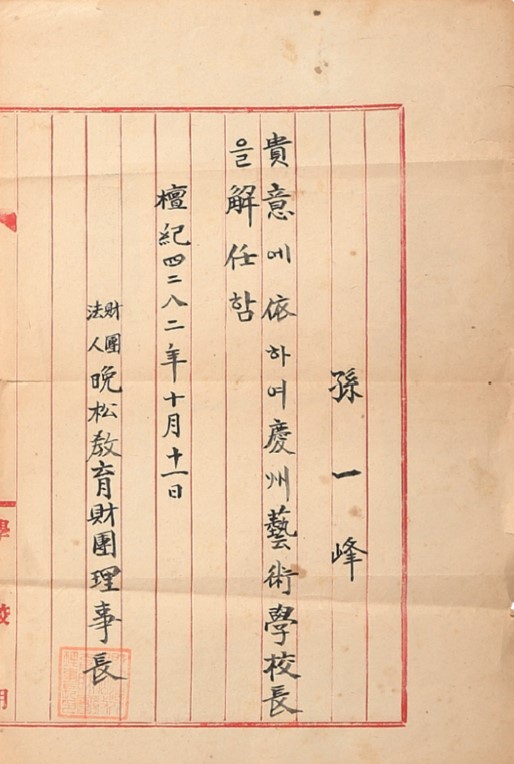 孫一峰
貴意에依하여慶州藝術學校長
을解任함
檀紀四二八二年十月十一日
財團
法人
晩松敎育財團理事長
學校用